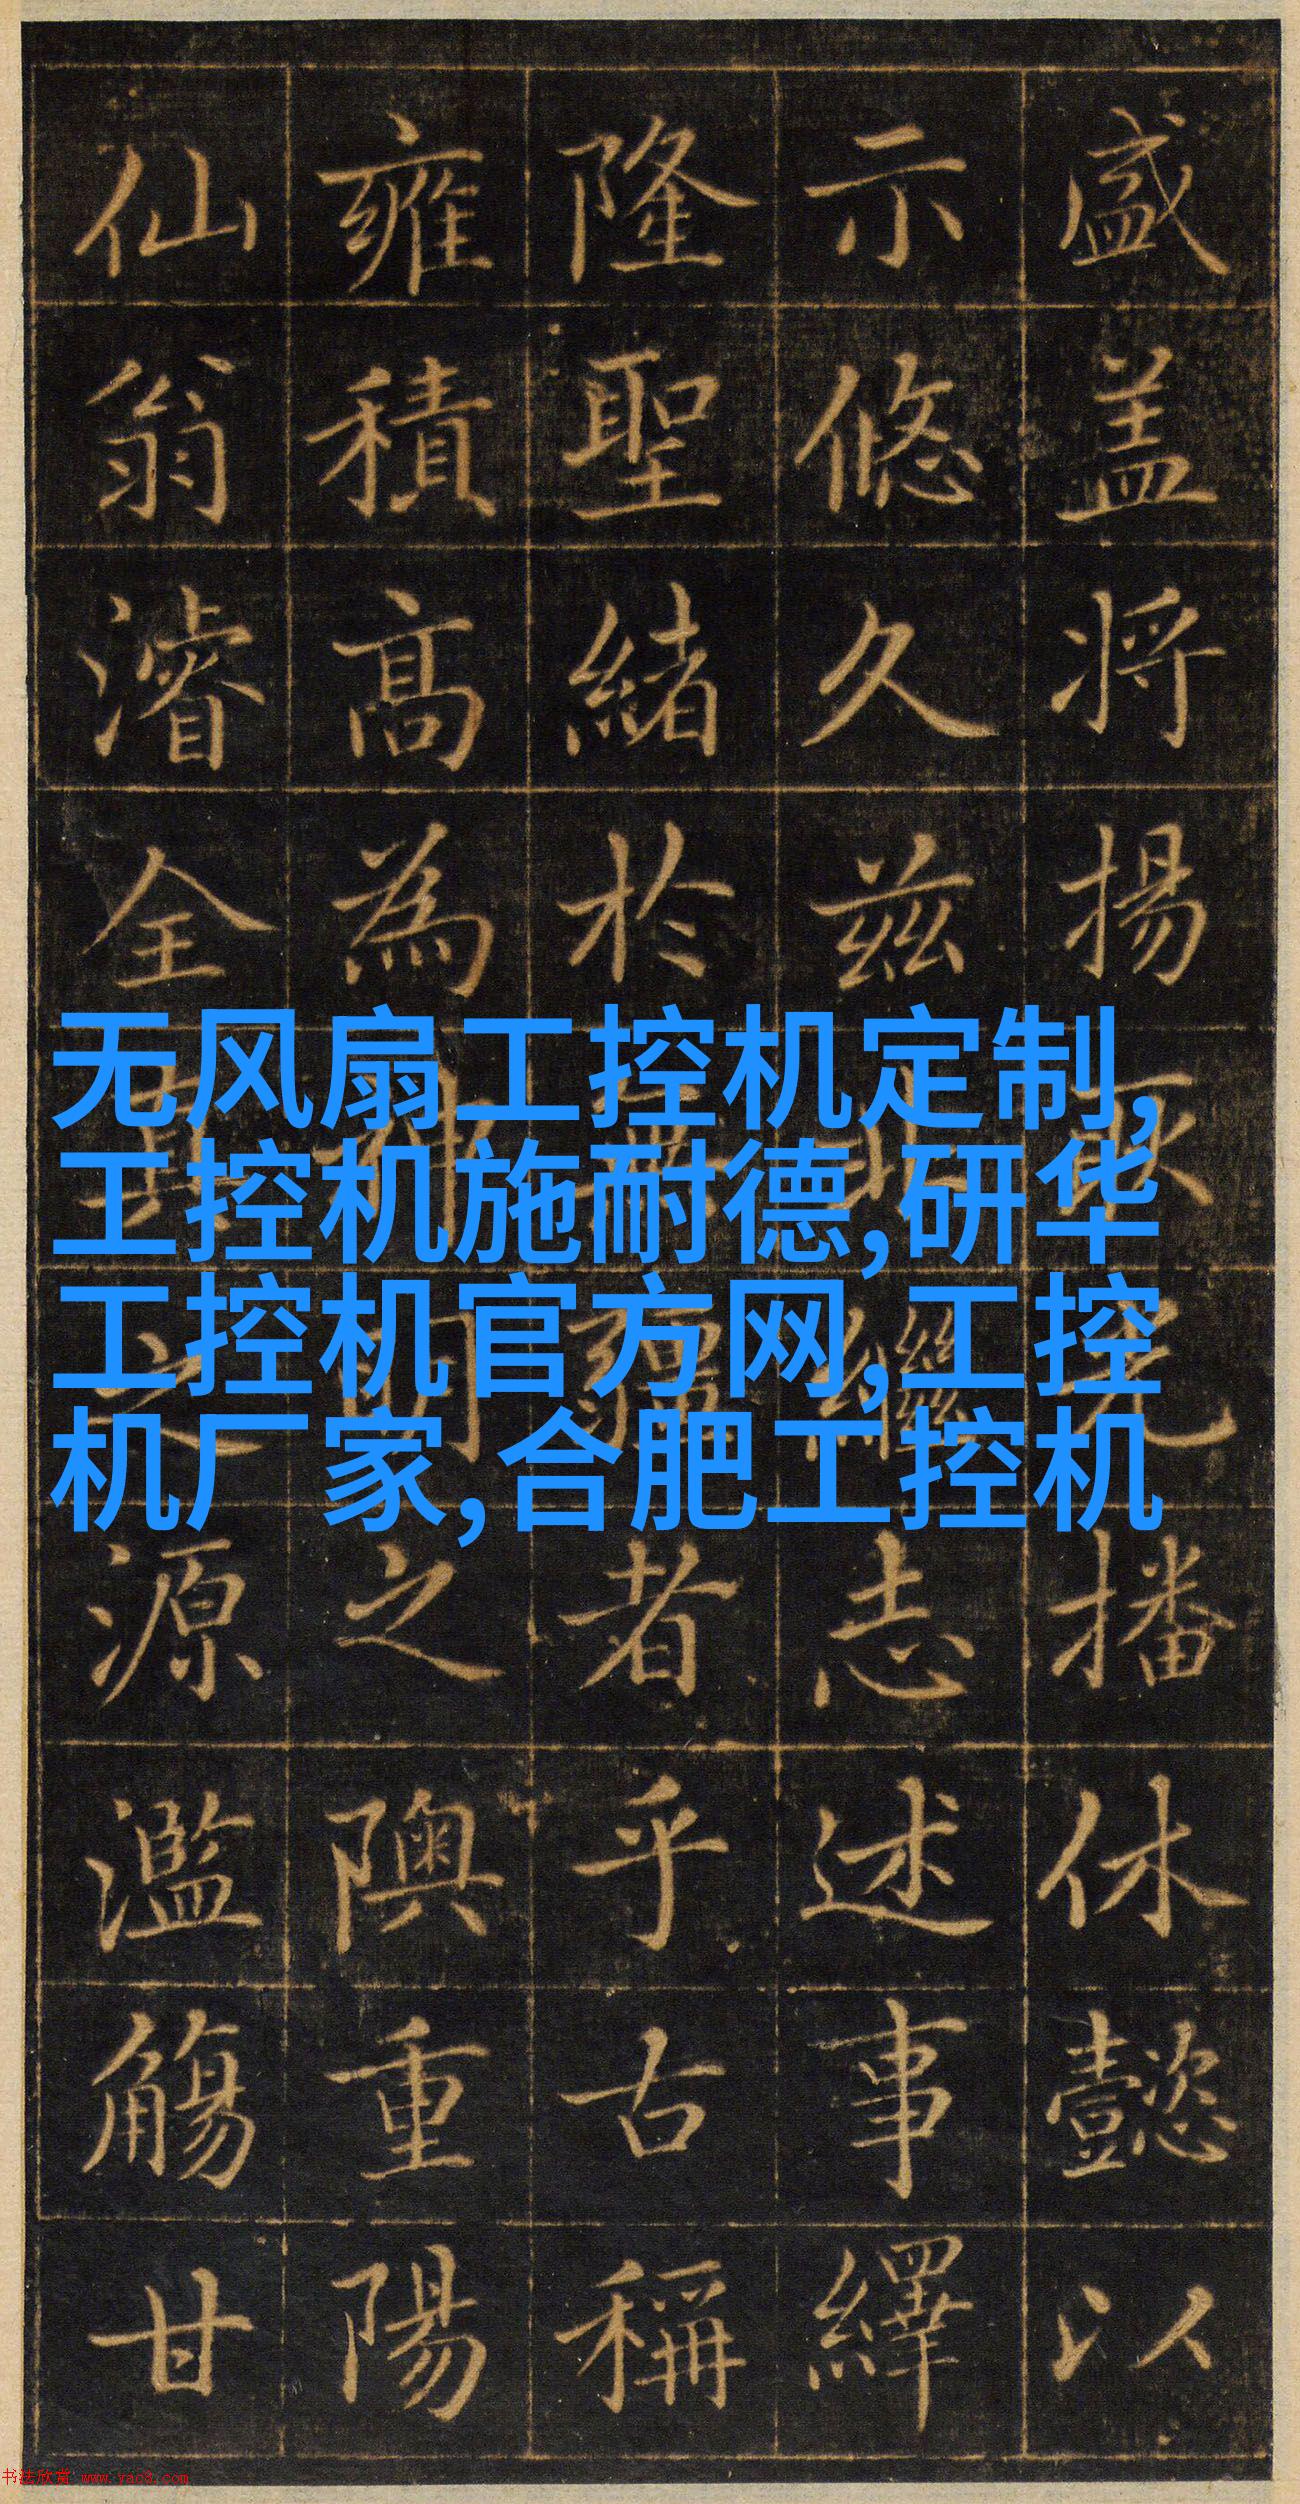 盛盖将揚播休懿以
示悠久兹繼志述事繹
隆聖緒於疆者乎古稱
雍積高為神明之隩重陽
仙翁濬全之源濫觴甘
无风扇工控机定制,
工控机施耐德,研华
工控机官方网,工控
机厂家,合肥工控机
书法欣赏 www.yac8.com